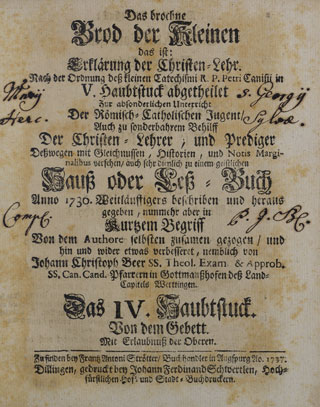 Das brochne
Brod der Kleinen
das ist:
Erklärung der Christen-Lehr.
Nach der Ordnung deß kleinen Catechismi R. P. Petri Canisii, in
V. Haubtstuck abgetheilet
s. Georgij
Mariæ
Zur absonderlichen Unterricht
Herc.
Der Römisch-Catholischen Jugend/
Sylvæ
Auch zu sonderbahrem Behilff
Der Christen-Lehrer, und Prediger
Deßwegen mit Gleichnussen, Historien, und Notis Margi-
nalibus versehen, auch sehr dienlich zu einem geistlichen
Hauß oder Leß-Buch
Anno 1730. Weitläuffigers beschriben und heraus
gegeben, nunmehr aber in
Kurtzem Begriff
Von dem Authore selbsten zusamen gezogen/ und
hin und wider etwas verbesseret, nemblich von
Johann Christoph Beer SS. Theol. Exam. & Approb.
SS. Can. Cand. Pfarrern in Gottmanßhofen deß Land-
Capitels Werttingen.
Das IV. Haubtstuck.
Von dem Gebett.
Mit Erlaubnuß der Oberen.
Zu finden bey Frantz Antoni Strötter/ Buchhandler in Augspurg Ao. 1737.
Dillingen, gedruckt bey Johann Ferdinand Schwertlen, Hoch-
fürstlichen Hof- und Stadt-Buchdruckern.